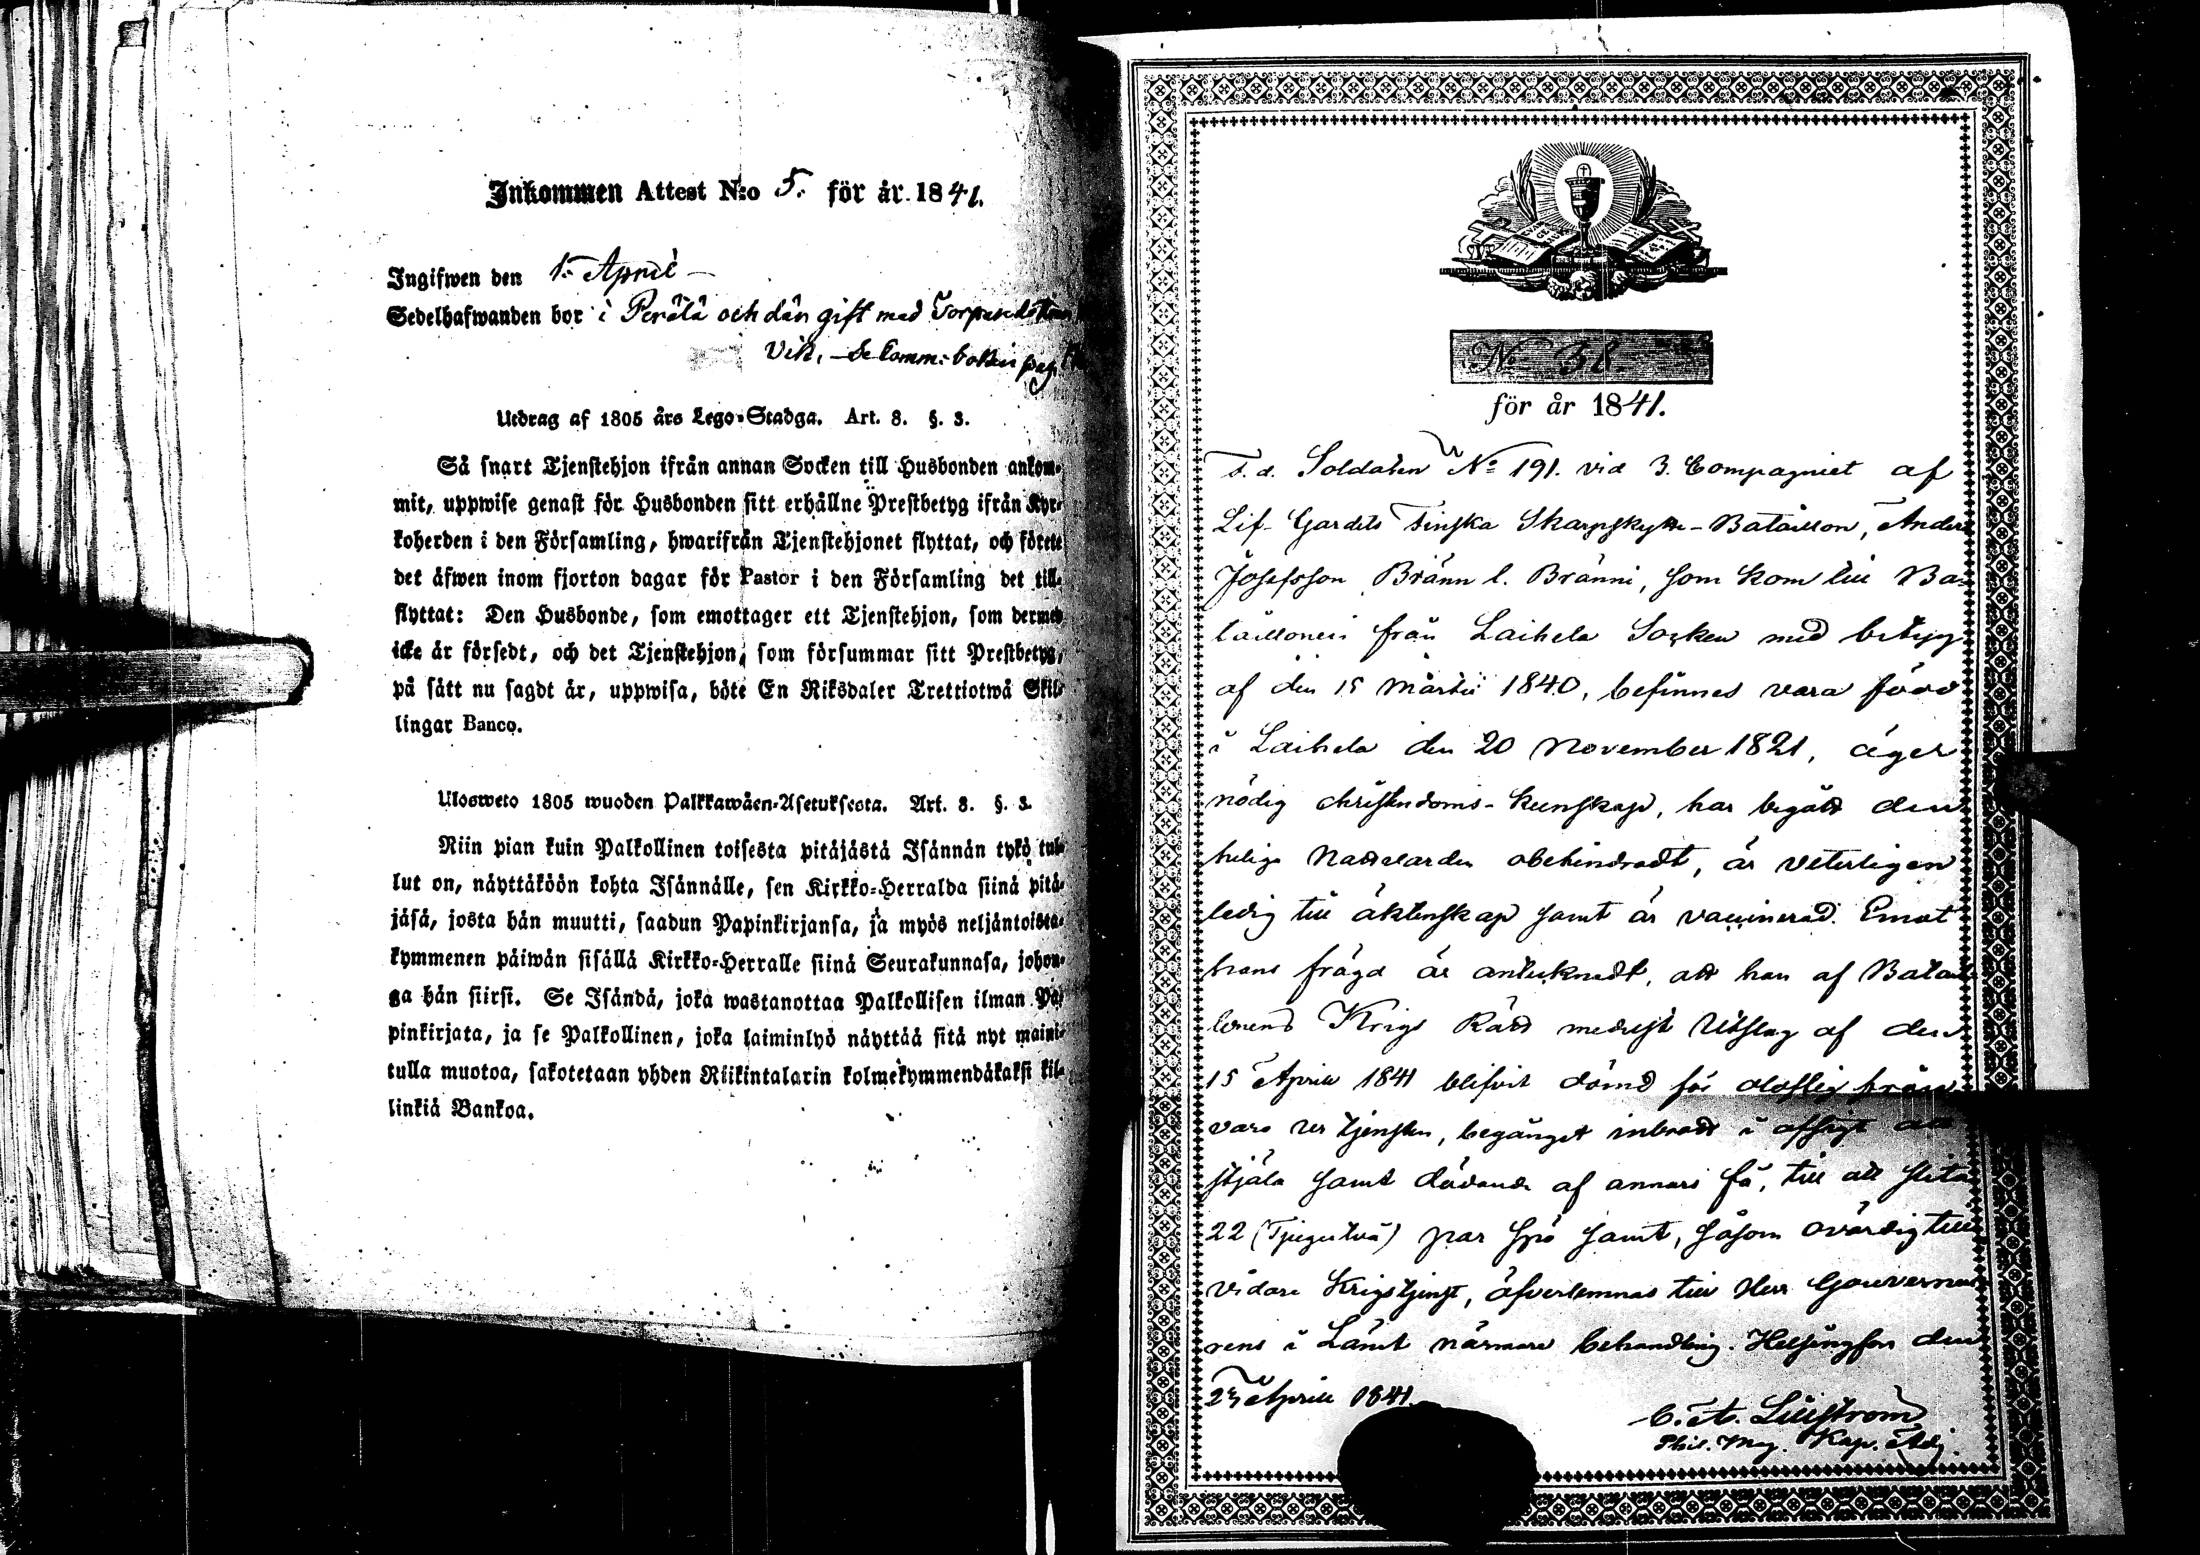 Inkommen Attest N:o 5. för år 1841.
Ingifwen den 1. April –
Sedelhafwanden bor i Perälä och där gift med
Vik, – Se Comm: boken pag.
Utdrag af 1805 års Lego-Stadga. Art. 8. §. 3.
Så snart Tjenstehjon ifrån annan Socken till Husbonden ankom-
mit, uppwise genast för Husbonden sitt erhållne Prestbetyg ifrån Kyr-
koherden i den Församling, hwarifrån Tjenstehjonet flyttat, och förete
det äfwen inom fjorton dagar för Pastor i den Församling det till-
flyttat: Den Husbonde, som emottager ett Tjenstehjon, som dermed
icke är försedt, och det Tjenstehjon, som försummar sitt Prestbetyg,
på sätt nu sagdt är, uppwisa, böte En Riksdaler Trettiotwå Skil-
lingar Banco.
Ulosweto 1805 wuoden Palkkawäen-Asetuksesta. Art. 8. §. 3.
Niin pian kuin Palkollinen toisesta pitäjästä Isännän tykö tul-
lut on, näyttäköön kohta Isännälle, sen Kirkko-Herralda siinä pitä-
jäsä, josta hän muutti, saadun Papinkirjansa, ja myös neljäntoista-
kymmenen päiwän sisällä Kirkko-Herralle siinä Seurakunnasa, johon-
ga hän siirsi. Se Isändä, joka wastanottaa Palkollisen ilman Pa-
pinkirjata, ja se Palkollinen, joka laiminlyö näyttää sitä nyt maini-
tulla muotoa, sakotetaan yhden Riikintalarin kolmekymmendäkaksi kil-
linkiä Bankoa.
No 38
för år 1841.
F. d. Soldaten No 191. vid 3. Compagniet af
Lif-Gardets Finska Skarpskytte-Bataillon, Anders
Josefsson Bränn l. Bränni, som kom till Ba-
taillonen från Laihela Socken med betyg
af den 15 Martii 1840, befinnes vara född
i Laihela den 20 November 1821, äger
nödig christendoms-kunskap, har begått den
heliga Nattvarden obehindradt, är veterligen
ledig till äktenskap samt är vaccinerad. Emot
hans frägd är anteknadt, att han af Batail-
lonens Krigs Rätt medelst Utslag af den
15 April 1841 blifvit dömd för olaflig från-
varo ur tjensten, begånget inbrott i afsigt att
stjäla samt dödande af annars få, till att slita
22 (Tjugutvå) par spö samt, såsom ovärdig till
vidare Krigstjenst, öfverlemnas till Herr Gouverneu-
rens i Länet närmare behandling. Helsingfors den
April 1841.
C. A. Lillström
Phil. Mag. Kap. Adj.